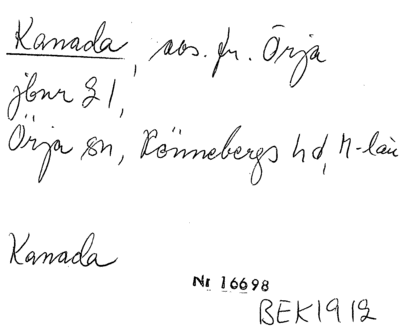 Kanada, avs. fr. Örja
jbnr 21,
Örja sn, Rönnebergs hd, M-län
Kanada
Nr 16698
BEK 1912